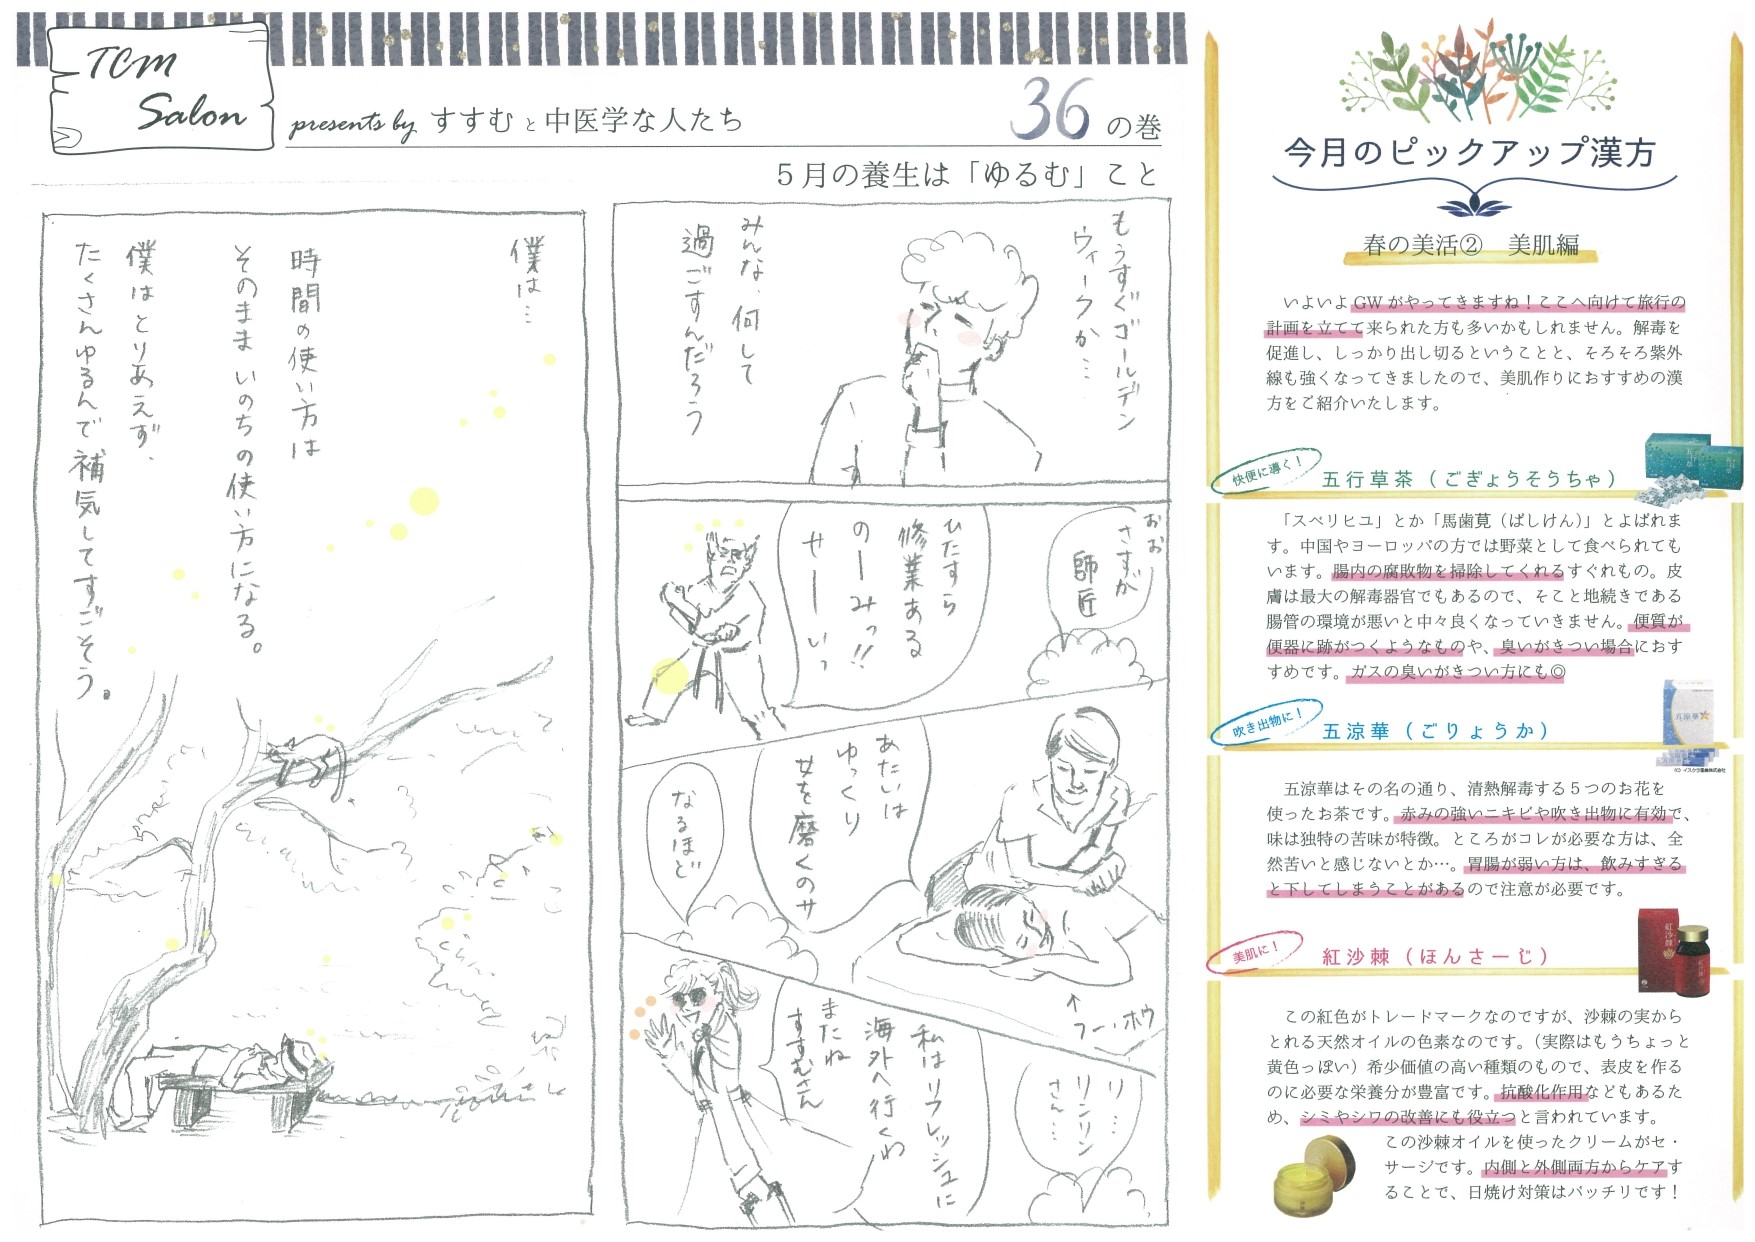 TCM
Salon
presents by すすむと中医学な人たち
36 の巻
5月の養生は「ゆるむ」こと
もうすぐゴールデン
ウィークか…
みんな、何して
過ごすんだろう
おお
さすが
師匠
ひたすら
修業ある
のーみっ!!
せーいっ
あたいは
ゆっくり
女を磨くのサ
なるほど
↑
フー・ホウ
私はリフレッシュに
海外へ行くわ
またね
すすむさん
リ…
リンリン
さん…
僕は…
時間の使い方は
そのまま いのちの使い方になる。
僕はとりあえず、
たくさんゆるんで補気してすごそう。
今月のピックアップ漢方
春の美活② 美肌編
いよいよGWがやってきますね！ここへ向けて旅行の
計画を立てて来られた方も多いかもしれません。解毒を
促進し、しっかり出し切るということと、そろそろ紫外
線も強くなってきましたので、美肌作りにおすすめの漢
方をご紹介いたします。
快便に導く！
五行草茶（ごぎょうそうちゃ）
「スベリヒユ」とか「馬歯莧（ばしけん）」とよばれま
す。中国やヨーロッパの方では野菜として食べられても
います。腸内の腐敗物を掃除してくれるすぐれもの。皮
膚は最大の解毒器官でもあるので、そこと地続きである
腸管の環境が悪いと中々良くなっていきません。便質が
便器に跡がつくようなものや、臭いがきつい場合におす
すめです。ガスの臭いがきつい方にも◎
吹き出物に！
五涼華（ごりょうか）
五涼華
(C) イスクラ産業株式会社
五涼華はその名の通り、清熱解毒する５つのお花を
使ったお茶です。赤みの強いニキビや吹き出物に有効で、
味は独特の苦味が特徴。ところがコレが必要な方は、全
然苦いと感じないとか…。胃腸が弱い方は、飲みすぎる
と下してしまうことがあるので注意が必要です。
美肌に！
紅沙棘（ほんさーじ）
紅沙棘
この紅色がトレードマークなのですが、沙棘の実から
とれる天然オイルの色素なのです。（実際はもうちょっと
黄色っぽい）希少価値の高い種類のもので、表皮を作る
のに必要な栄養分が豊富です。抗酸化作用などもあるた
め、シミやシワの改善にも役立つと言われています。
この沙棘オイルを使ったクリームがセ・
サージです。内側と外側両方からケアす
ることで、日焼け対策はバッチリです！